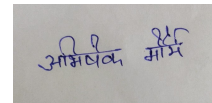 अभिषेक मौर्य